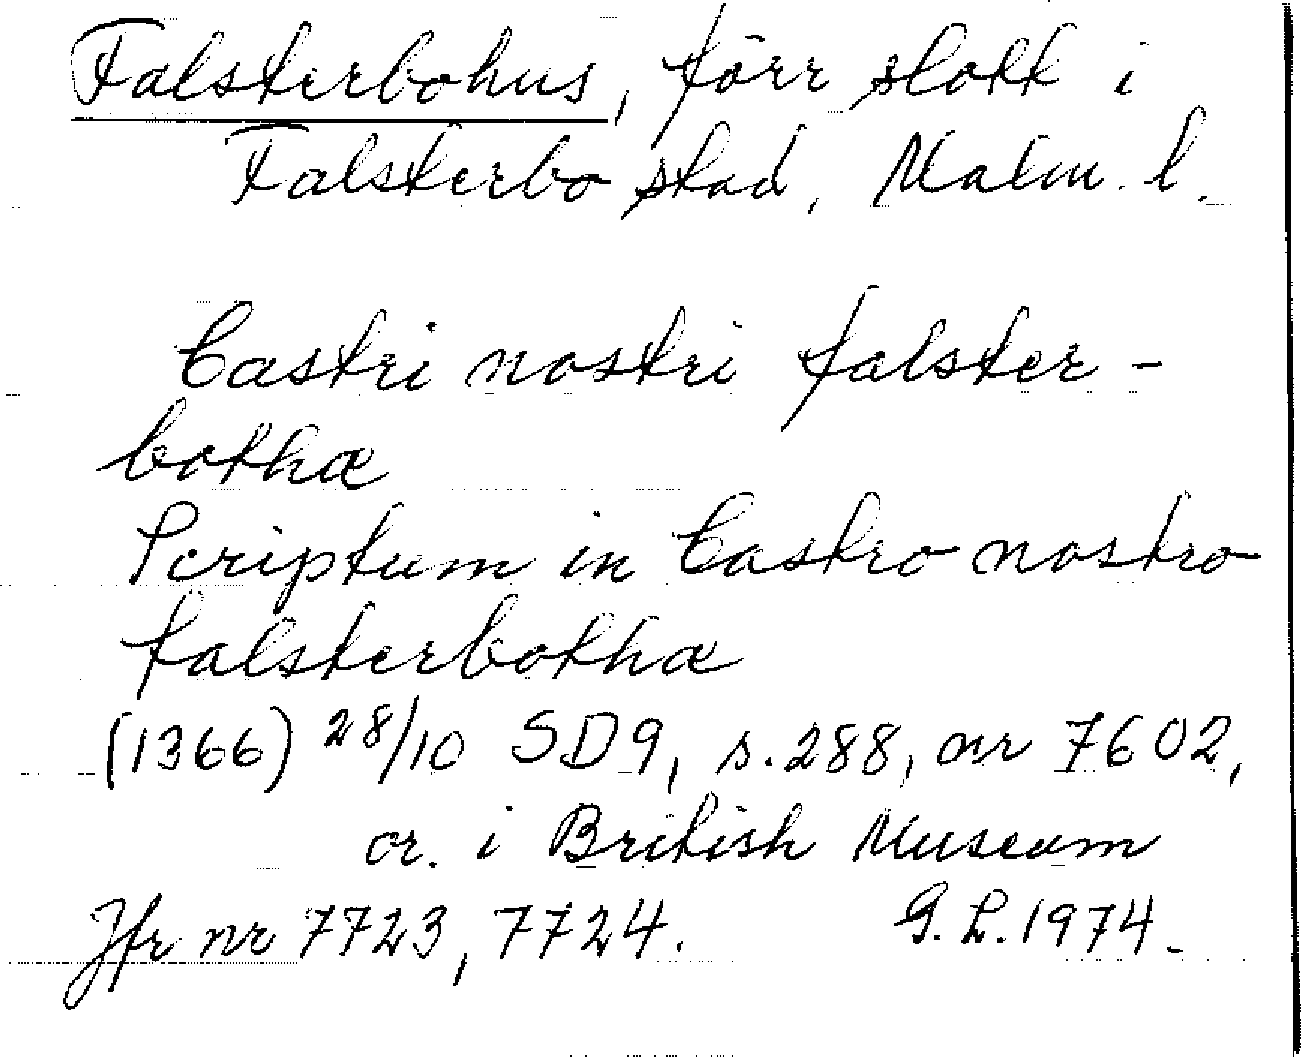 Falsterbohus, förr slott i
Falsterbo stad, Malm. l.
Castri nostri falster-
bothæ
Scriptum in Castro nostro
falsterbothæ
(1366) 28/10 SD9, s.288, nr 7602,
or. i British Museum
Jfr nr 7723, 7724. G.L.1974.